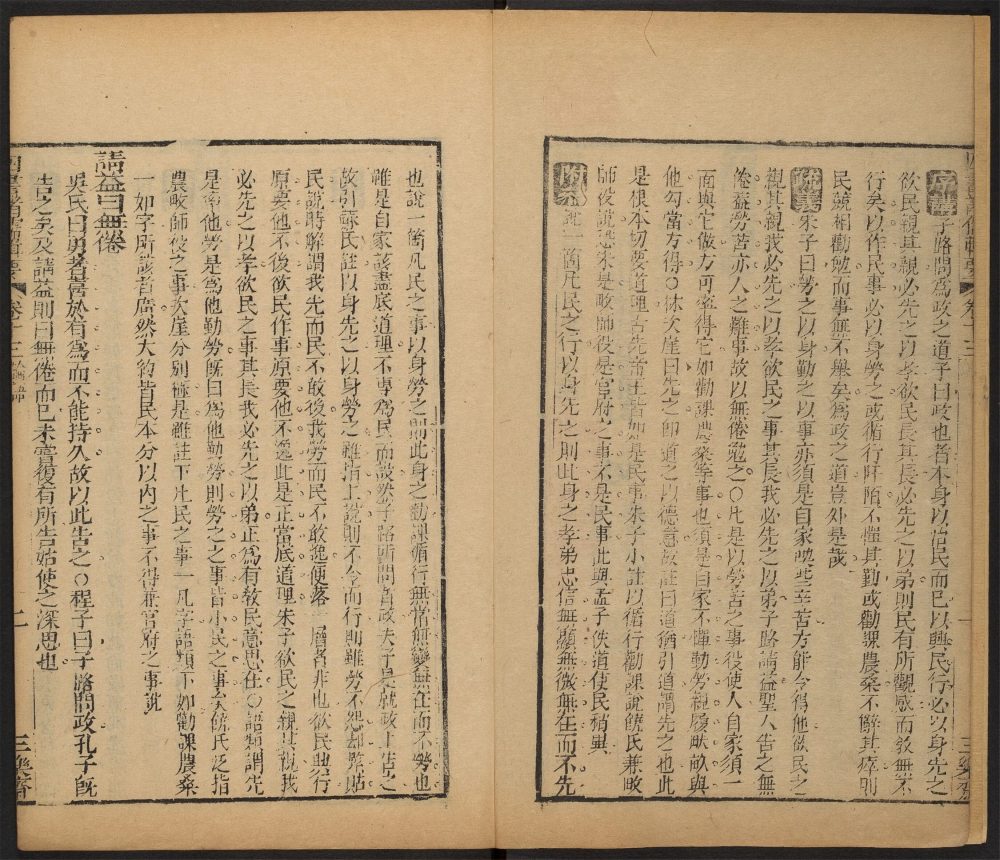 子路問為政之道子曰政也者本身以治民而已以興民行必以身先之
欲民親其親必先之以孝欲民長其長必先之以弟則民有所觀感而教無不
行矣以作民事必以身勞之或循行阡陌不憚其勤或勸課農桑不辭其瘁則
民競相勸勉而事無不舉矣為政之道豈外是哉
朱子曰勞之以身勤之以事亦須是自家喫些辛苦方能令得他欲民之
親其親我必先之以孝欲民之事其長我必先之以弟子路請益聖人告之無
倦蓋勞苦亦人之難事故以無倦勉之○凡是以勞苦之事役使人自家須一
面與它做方可率得它如勸課農桑等事也須是自家不憚勤勞親履畎畝與
他勾當方得○林次崖曰先之即道之以德意故註曰道猶引道謂先之也此
是根本切要道理古先帝王皆如是民事朱子小註以循行勸課說饒氏兼畋
師役說恐未是畋師役是官府之事不是民事此與孟子佚道使民稍異
說一箇凡民之行以身先之則此身之孝弟忠信無顯無微無在而不先
也說一箇凡民之事以身勞之則此身之勸課循行無常無變無在而不勞也
雖是自家該盡底道理不專為民而設然子路所問者政夫子是就政上告之
故引蘇氏註以身先之以身勞之雖指上說則不令而行則雖勞不怨却緊貼
民說時解謂我先而民不敢後我勞而民不敢逸便落一層者非也欲民興行
原要他不後欲民作事原要他不逸此是正當底道理朱子欲民之親其親我
必先之以孝欲民之事其長我必先之以弟正為有教民意思在○語類謂先
是率他勞是為他勤勞既曰為他勤勞則勞之之事皆小民之事矣饒氏泛指
農畋師役之事次崖分别極是雖註下凡民之事一凡字語類下如勸課農桑
一如字所該者廣然大約皆民本分以内之事不得兼官府之事說
請益曰無倦
吳氏曰勇者喜於有為而不能持久故以此告之○程子曰子路問政孔子既
告之矣及請益則曰無倦而已未嘗復有所告姑使之深思也